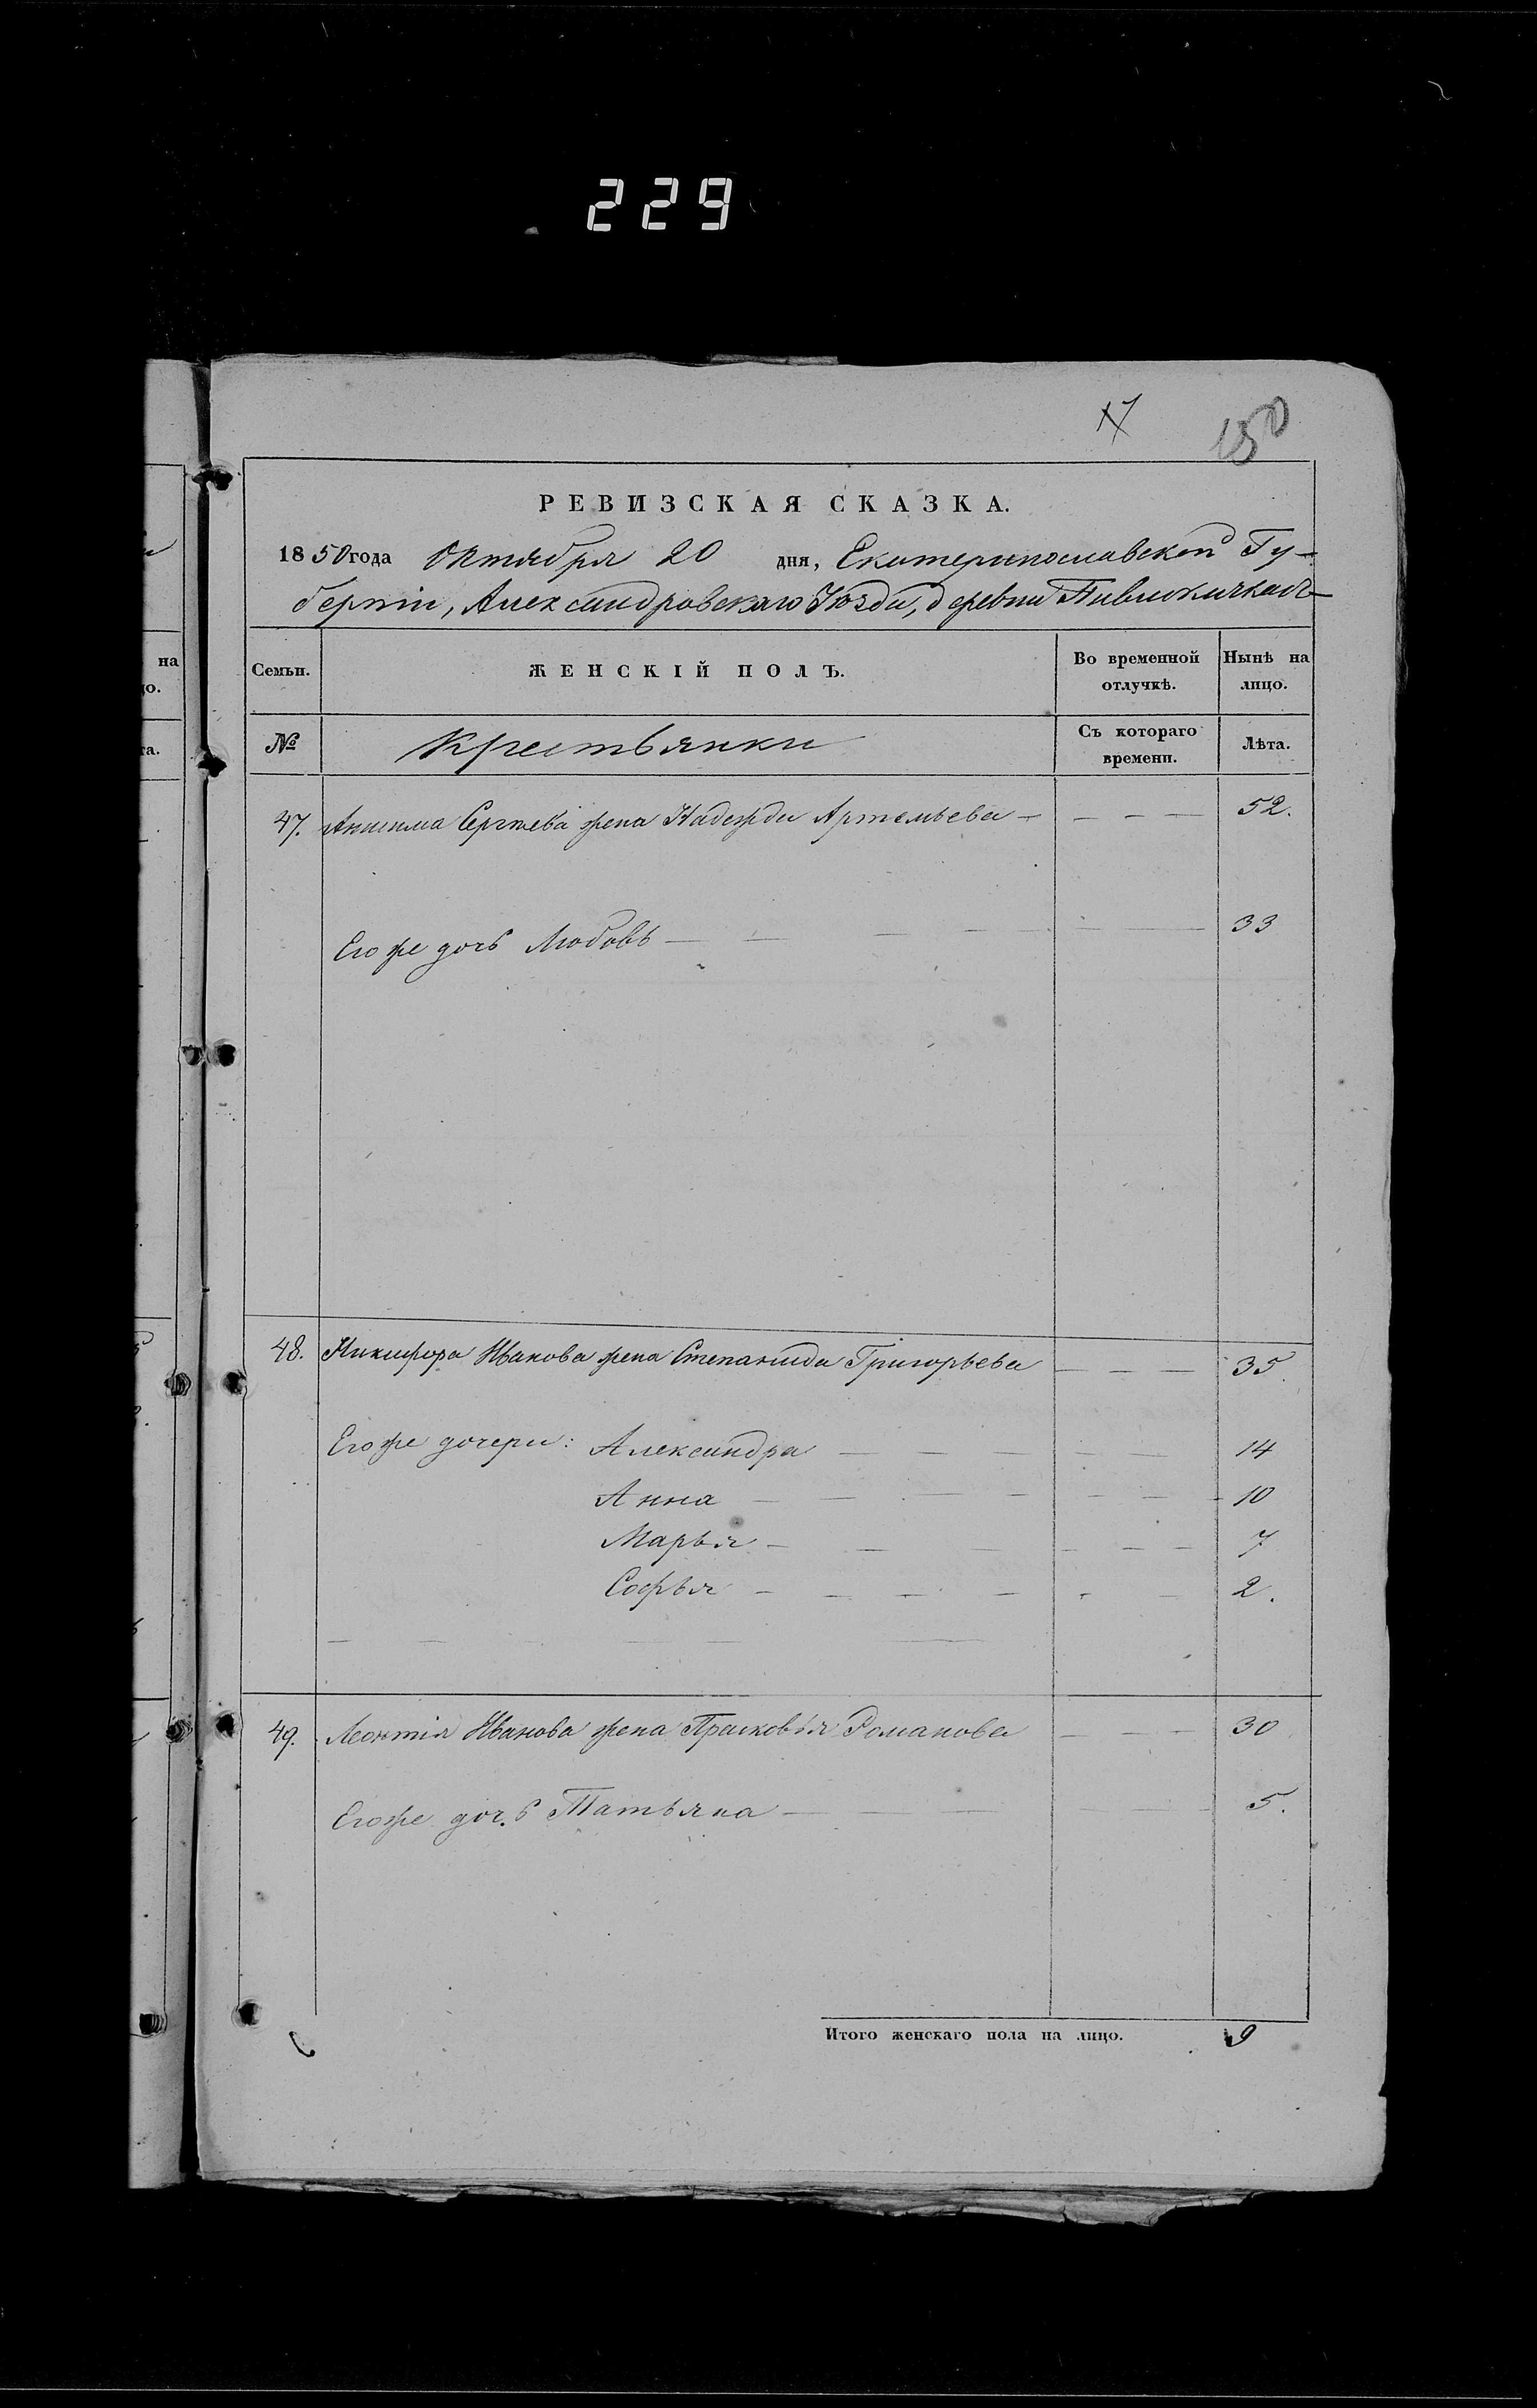 229
17
150
РЕВИЗСКАЯ СКАЗКА.
1850 года Октября 20 дня, Екатеринославской Гу-
берніи, Александровскаго Уѣзда, деревни
на
Семьи. ЖЕНСКІЙ ПОЛЪ. Во временной отлучкѣ. Нынѣ на лицо.
№ Крестьянки Съ котораго времени. Лѣта.
47. Анисима Сергѣева жена Надежда Артемьева — — — — 52.
Его же дочь Любовь — — — — — — 33
48. Никифора Иванова жена Степанида Григорьева — — — 35.
Его же дочери: Александра — — — — — 14
Анна — — — — — — — 10
Марья — — — — — — 7
Софья — — — — — — 2.
49. Леонтія Иванова жена Прасковья Романова — — — 30
Его же дочь Татьяна — — — — 5.
Итого женскаго пола на лицо. 9